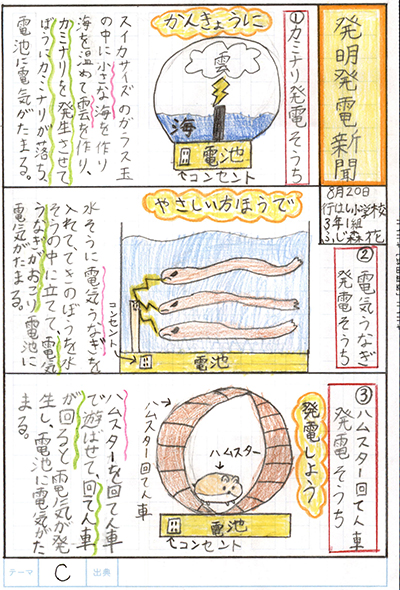 発明発電新聞
8月20日
行はし小学校
3年1組
ふじ森花
かんきょうに
①カミナリ発電そうち
雲
海
電池
コンセント
スイカサイズのガラス玉
の中に小さな海を作り
海を温めて雲を作り、
カミナリを発生させて
ぼうにカミナリが落ち、
電池に電気がたまる。
やさしい方ほうで
②電気うなぎ
発電そうち
コンセント
電池
水そうに電気うなぎを
入れて、てきのぼうを水
そうの中に立てて、電気
うなぎがおこり電池に
電気がたまる。
発電しよう
③ハムスター回てん車
発電そうち
ハムスター回てん車
ハムスター
電池
コンセント
ハムスターを回てん車
で遊ばせて、回てん車
が回ると電気が発
生し、電池に電気がた
まる。
テーマ
C
出典